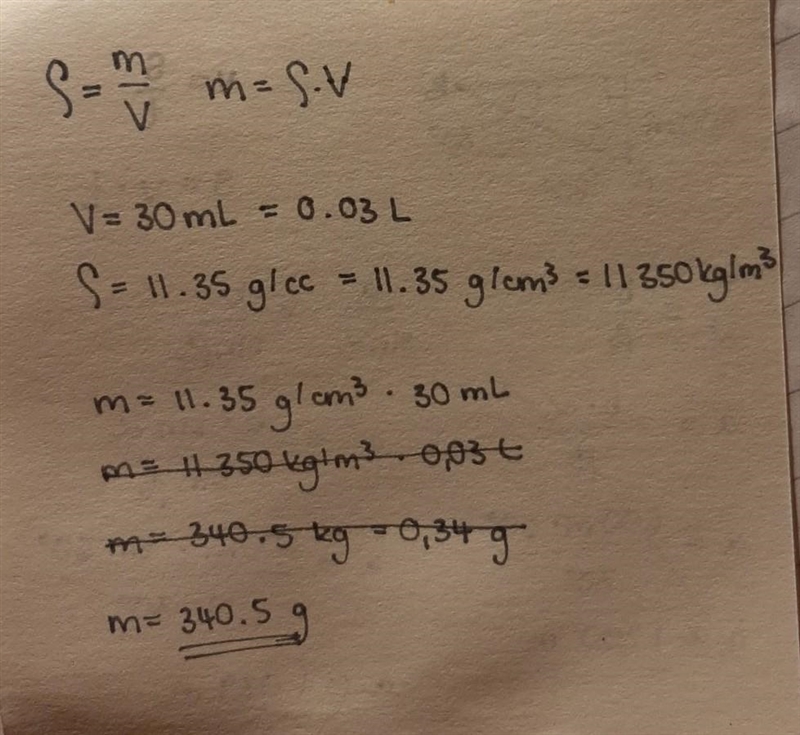 ρ = m/V m = ρ·V
V = 30 mL = 0.03 L
ρ = 11.35 g/cc = 11.35 g/cm³ = 11350 kg/m³
m = 11.35 g/cm³ · 30 mL
m = 11350 kg/m³ · 0,03 L
m = 340.5 kg = 0,34 g
m = 340.5 g